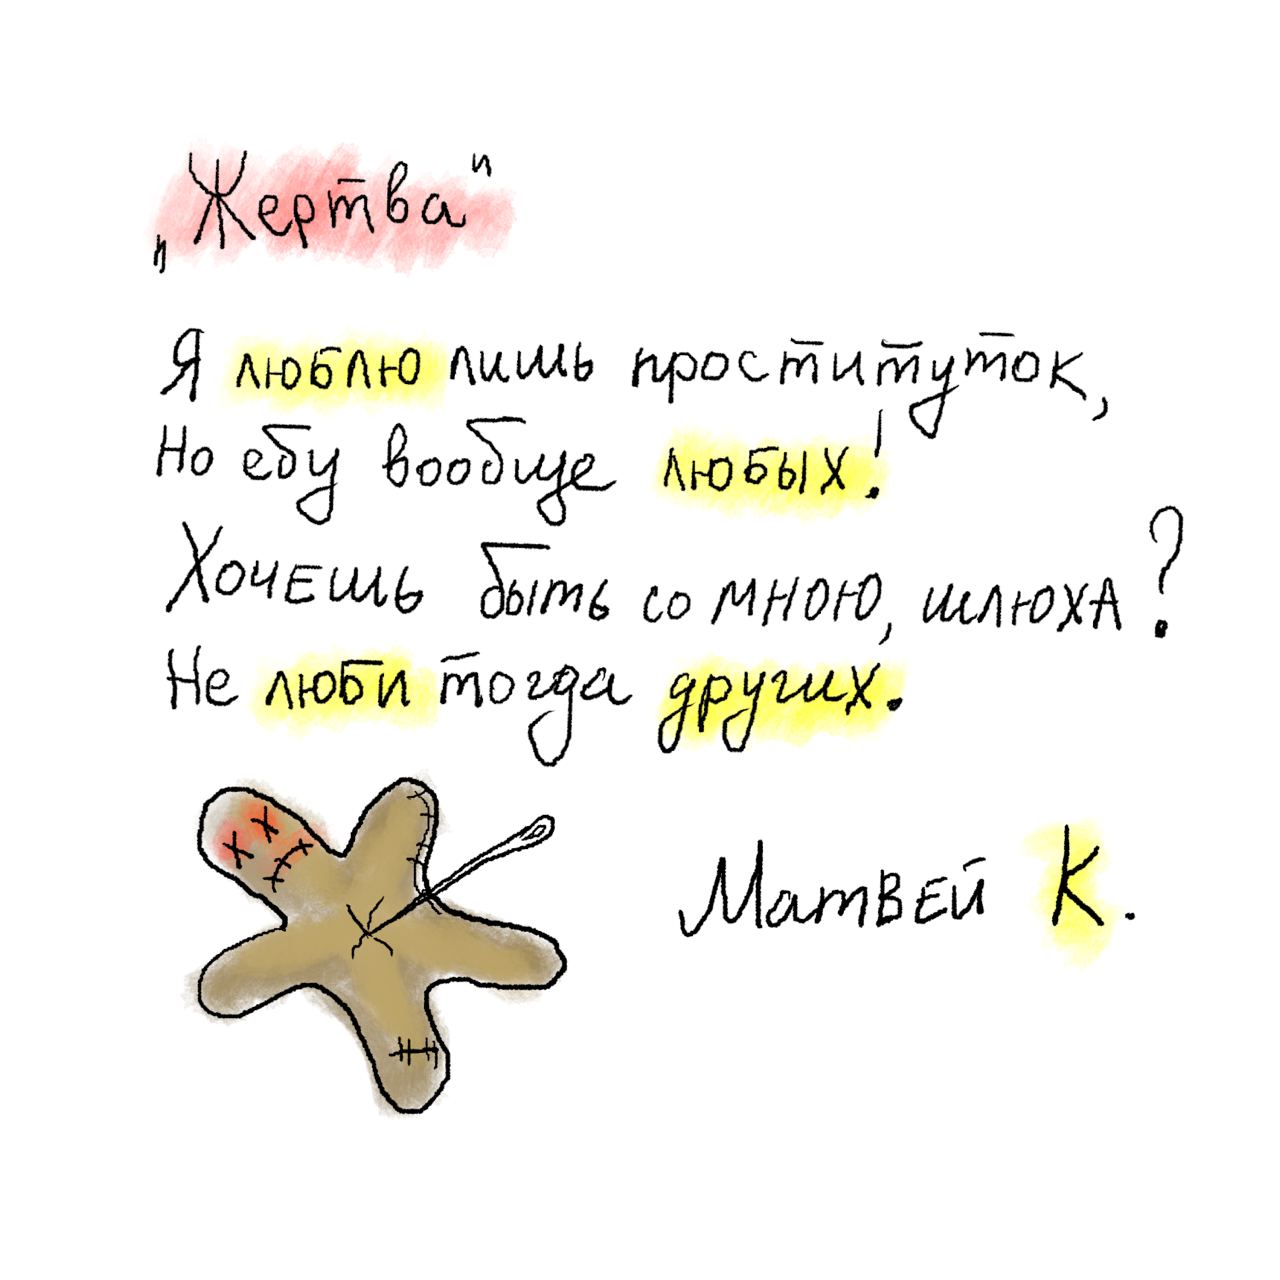 „Жертва"
Я люблю лишь проституток,
Но ебу вообще любых!
Хочешь быть со мною, шлюха?
Не люби тогда других.
Матвей К.